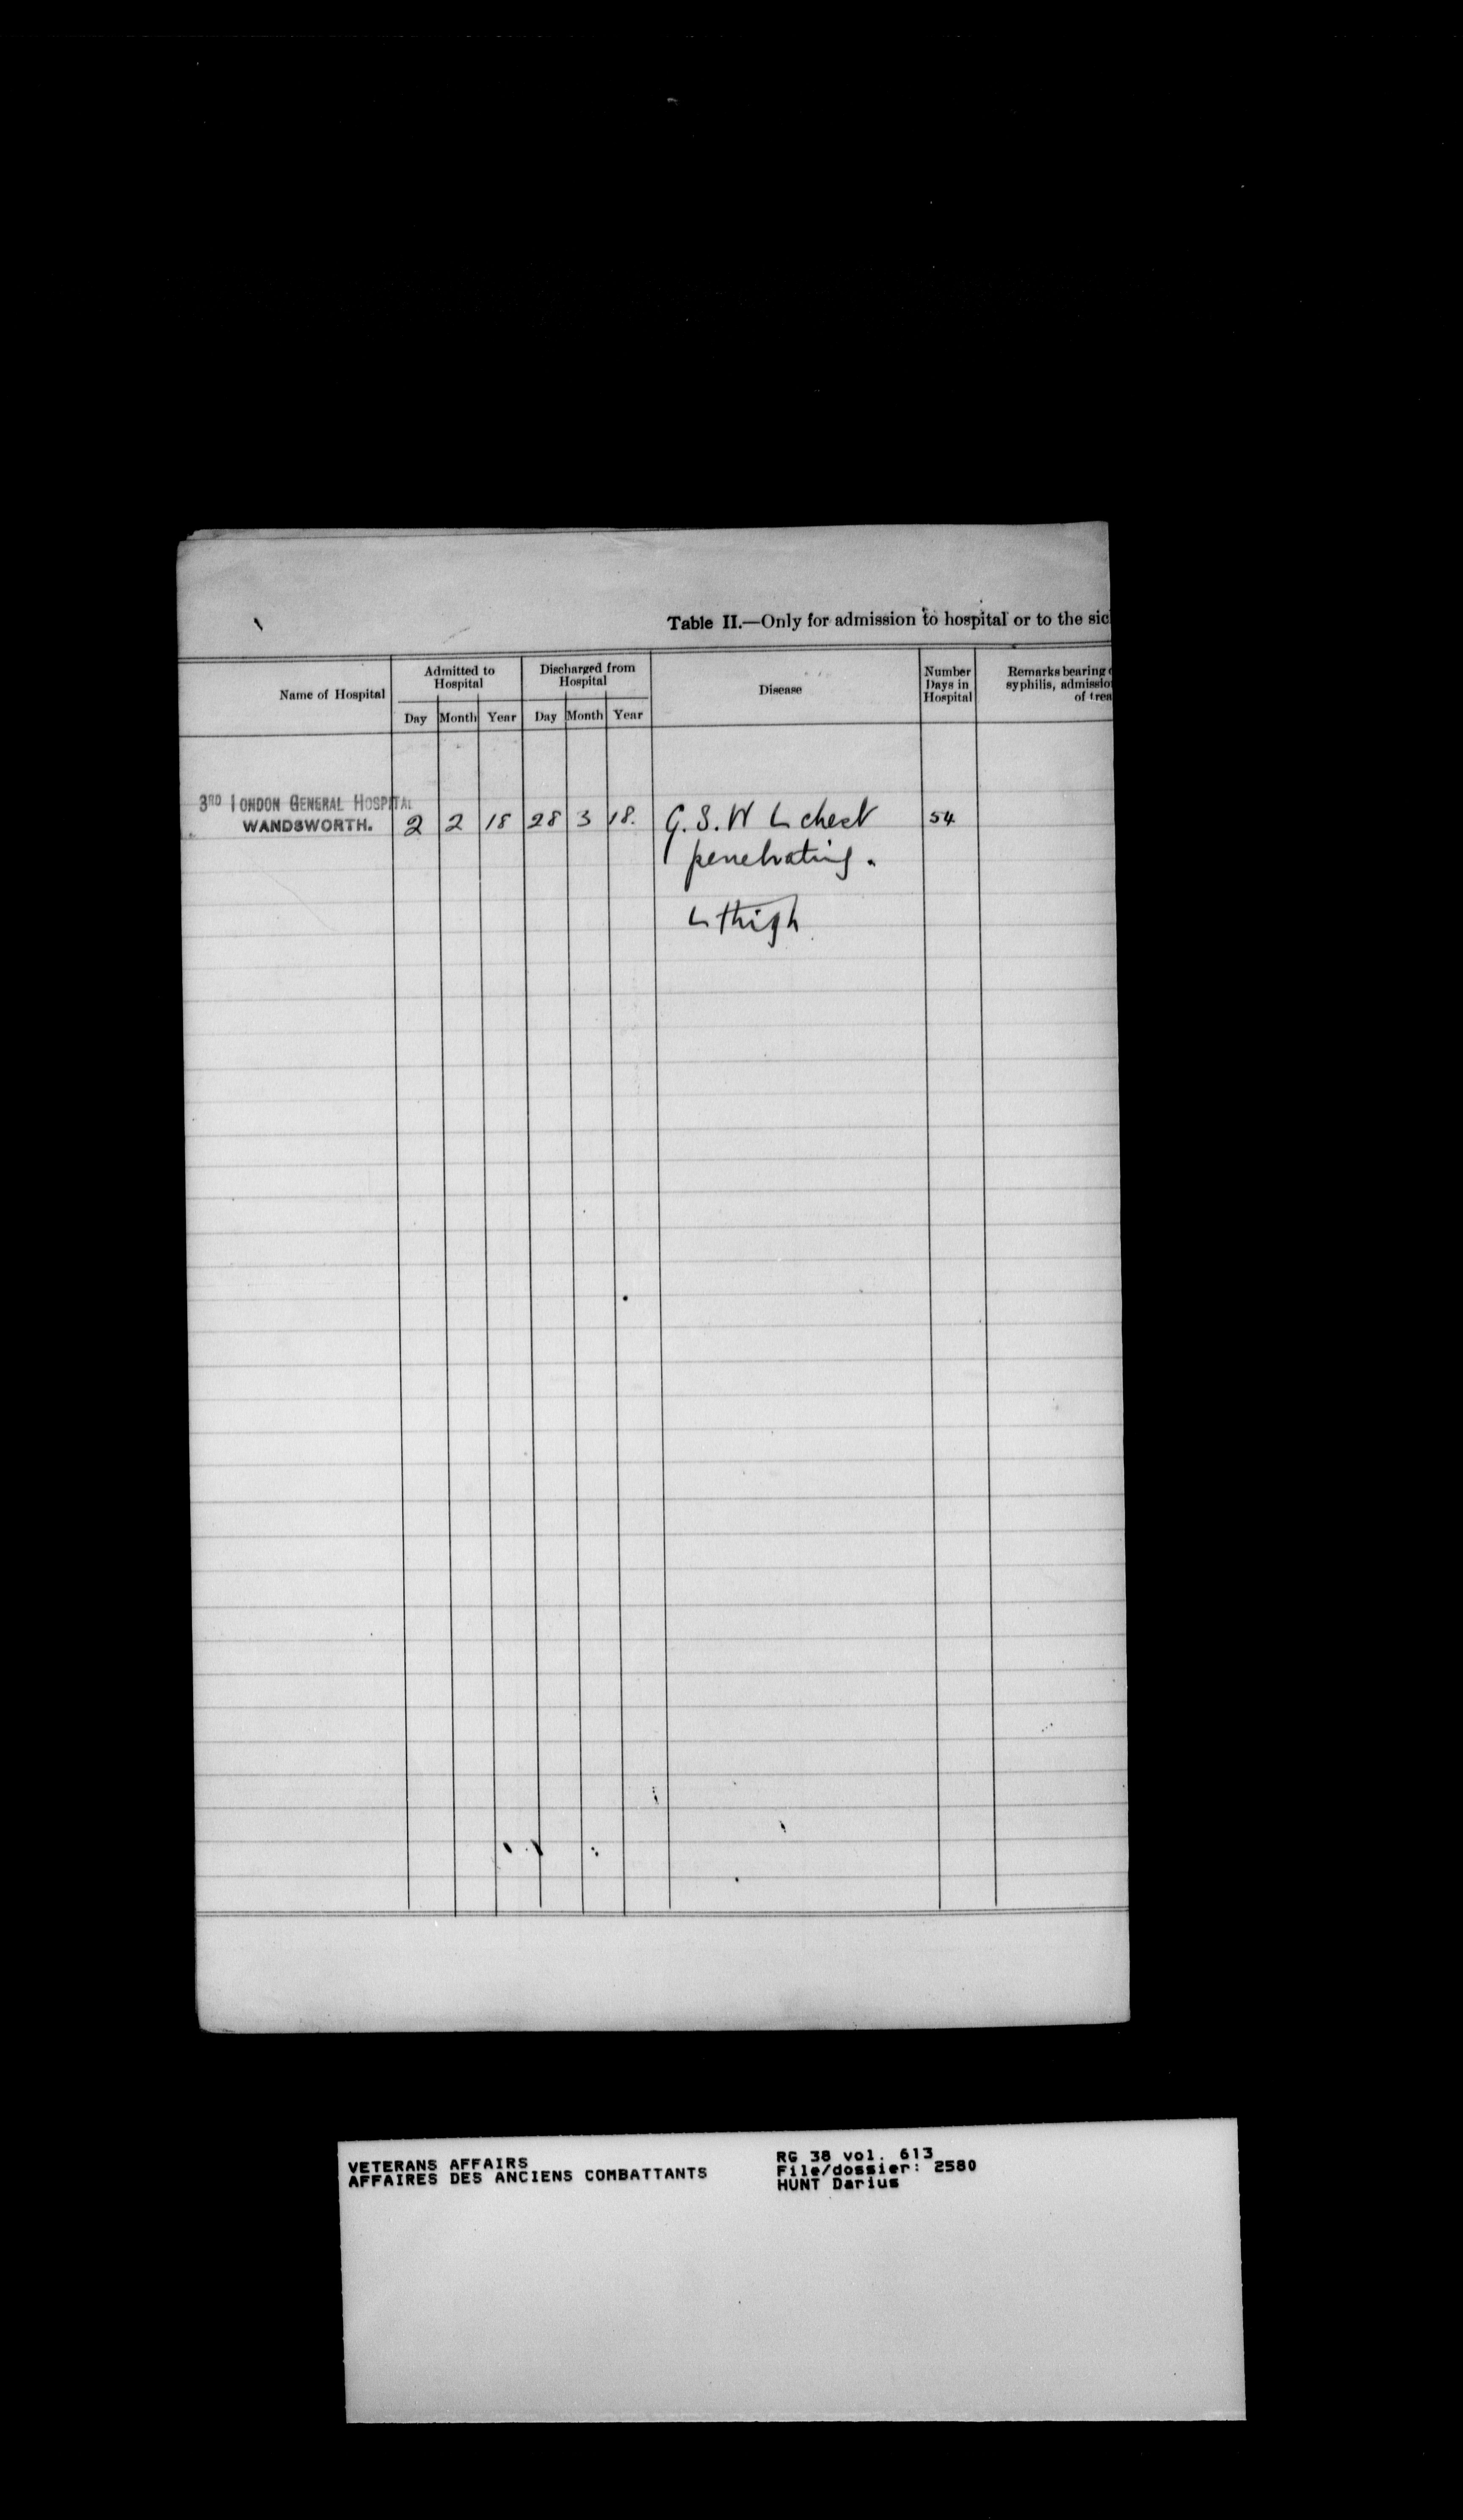 Table II.—Only for admission to hospital or to the sic
Name of Hospital
Admitted to
Hospital
Discharged from
Hospital
Disease
Number
Days in
Hospital
Remarks bearing
syphilis, admissio
of trea
Day Month Year Day Month Year
3RD LONDON GENERAL HOSPITAL
WANDSWORTH.
2 2 18 28 3 18. G.S.W L chest 54
penetrating.
L thigh
VETERANS AFFAIRS
AFFAIRES DES ANCIENS COMBATTANTS
RG 38 vol. 613
File/dossier: 2580
HUNT Darius